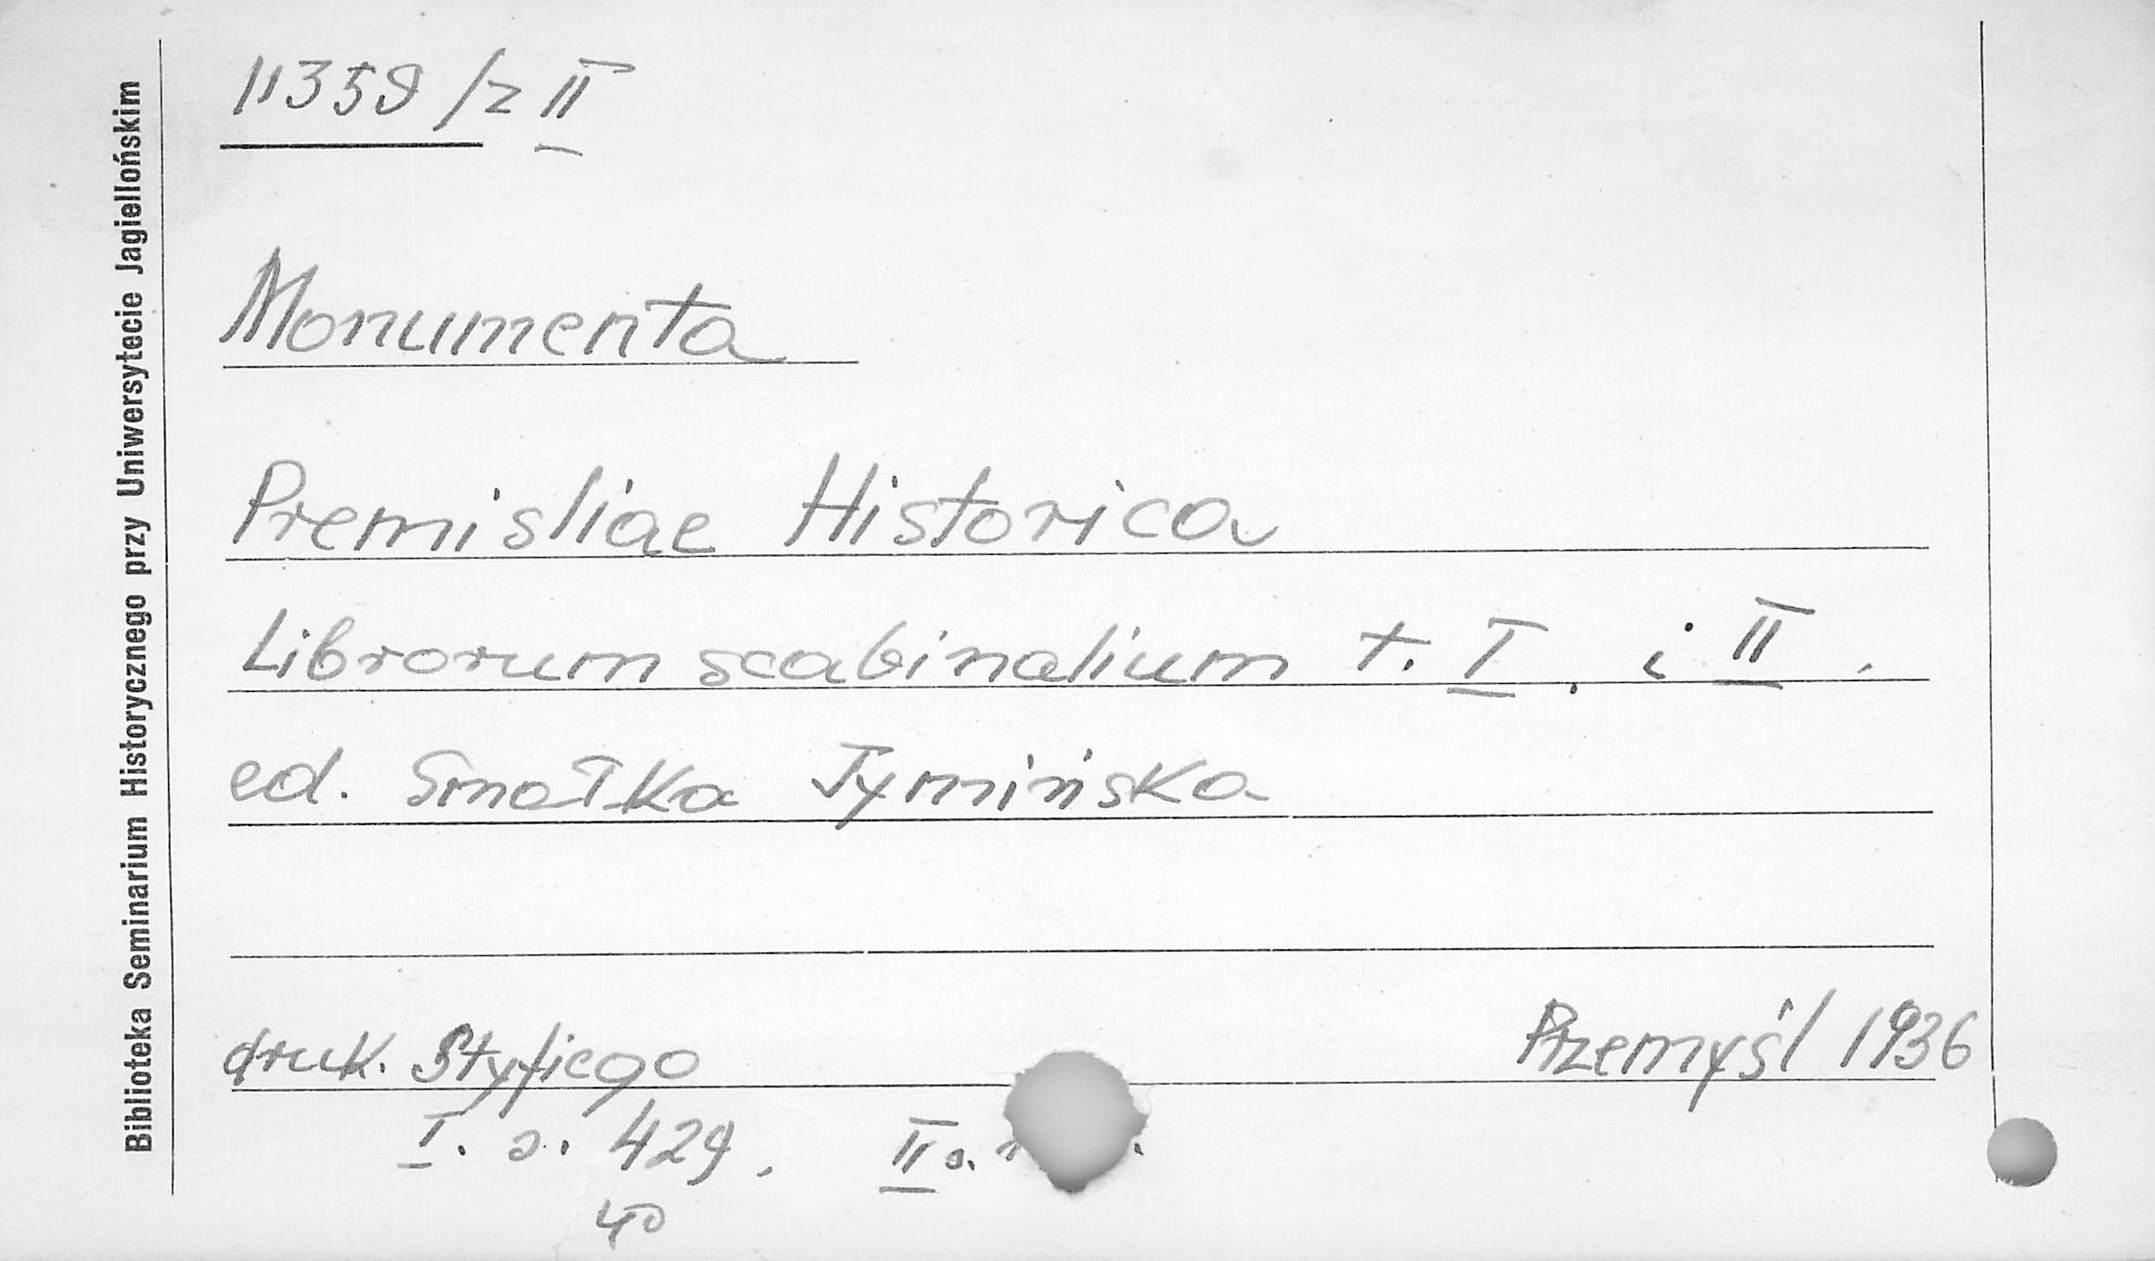 11359 /z II
Monumenta
Premisliae Historica
Librorum scabinalium t. I. i II.
ed. Smołka Tymińska
druk. Styfiego
Przemyśl 1936
I. s. 429. II s.
4°
Biblioteka Seminarium Historycznego przy Uniwersytecie Jagiellońskim